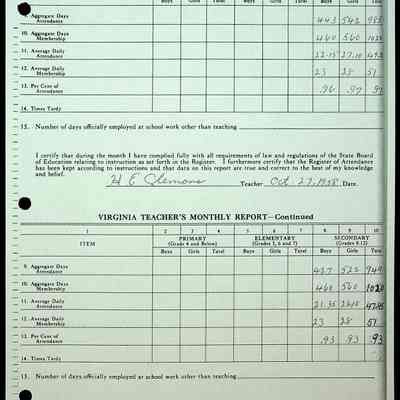 Boys Girls Total Boys Girls Total Boys Girls Total
9. Aggregate Days Attendance 443 542 985
10. Aggregate Days Membership 460 560 1020
11. Average Daily Attendance 22.15 27.10
12. Average Daily Membership 23 28 51
13. Per Cent of Attendance .96 .97 .97
14. Times Tardy
15. Number of days officially employed at school work other than teaching
I certify that during the month I have complied fully with all requirements of law and regulations of the State Board
of Education relating to instruction as set forth in the Register. I furthermore certify that the Register of Attendance
has been kept according to instructions and that data on this report are true and correct to the best of my knowledge
and belief.
H E Clemons Teacher Oct 27, 1958 Date.
VIRGINIA TEACHER'S MONTHLY REPORT—Continued
1 2 3 4 5 6 7 8 9 10
ITEM PRIMARY (Grade 4 and Below) ELEMENTARY (Grades 5, 6 and 7) SECONDARY (Grades 8-12)
Boys Girls Total Boys Girls Total Boys Girls Total
9. Aggregate Days Attendance 427 522 949
10. Aggregate Days Membership 460 560 1020
11. Average Daily Attendance 21.35 26.10 47.45
12. Average Daily Membership 23 28 51
13. Per Cent of Attendance .93 .93 .93
14. Times Tardy
15. Number of days officially employed at school work other than teaching